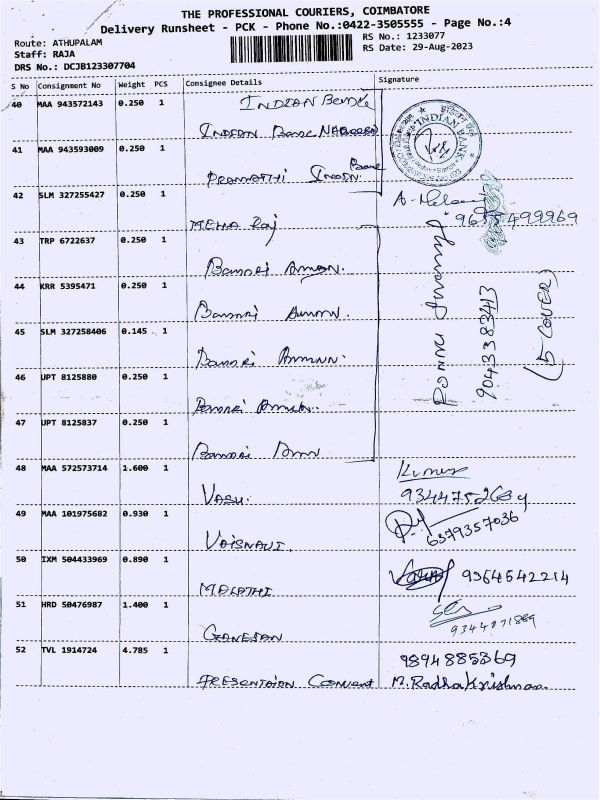 THE PROFESSIONAL COURIERS, COIMBATORE
Delivery Runsheet - PCK - Phone No.:0422-3505555 - Page No.:4
Route: ATHUPALAM
Staff: RAJA
DRS No.: DCJB123307704
RS No.: 1233077
RS Date: 29-Aug-2023
S No Consignment No Weight PCS Consignee Details Signature
40 MAA 943572143 0.250 1 INDIAN
INDIAN Bank
INDIAN BANK
41 MAA 943593009 0.250 1
42 SLM 327255427 0.250 1 MEHA Raj
43 TRP 6722637 0.250 1 Bannari Amman.
44 KRR 5395471 0.250 1 Bannari Amman
9043383413
(5 COVER)
45 SLM 327258406 0.145 1 Bannari Amman.
46 UPT 8125880 0.250 1 Bannari Amman.
47 UPT 8125837 0.250 1 Bannari Amman
48 MAA 572573714 1.600 1 VASU.
49 MAA 101975682 0.930 1 VAISNAVI.
6379357036
50 IXM 504433969 0.890 1 MALATHI
9364542214
51 HRD 50476987 1.400 1 GANESAN
9344871889
52 TVL 1914724 4.785 1 PRESENTAION Convent
9894885369
M. Radhakrishnan.